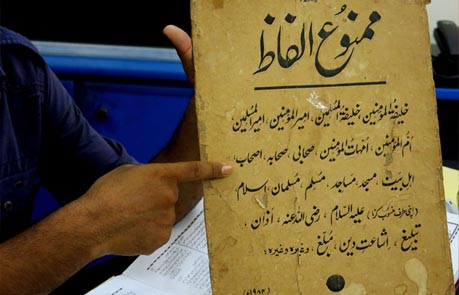 ممنوع الفاظ
خلیفۃ المؤمنین، خلیفۃ المسلمین، امیر المؤمنین، امیر المسلمین،
ام المؤمنین، امہات المؤمنین، صحابی، صحابہ، اصحاب،
اہل بیت، مسجد، مساجد، مسلم، مسلمان، اسلام
(اپنی طرف منسوب کرنا) علیہ السلام، رضی اللہ عنہ، اذان،
تبلیغ، اشاعت دین، مبلغ، وغیرہ وغیرہ؛
(۱۹۸۴ء)